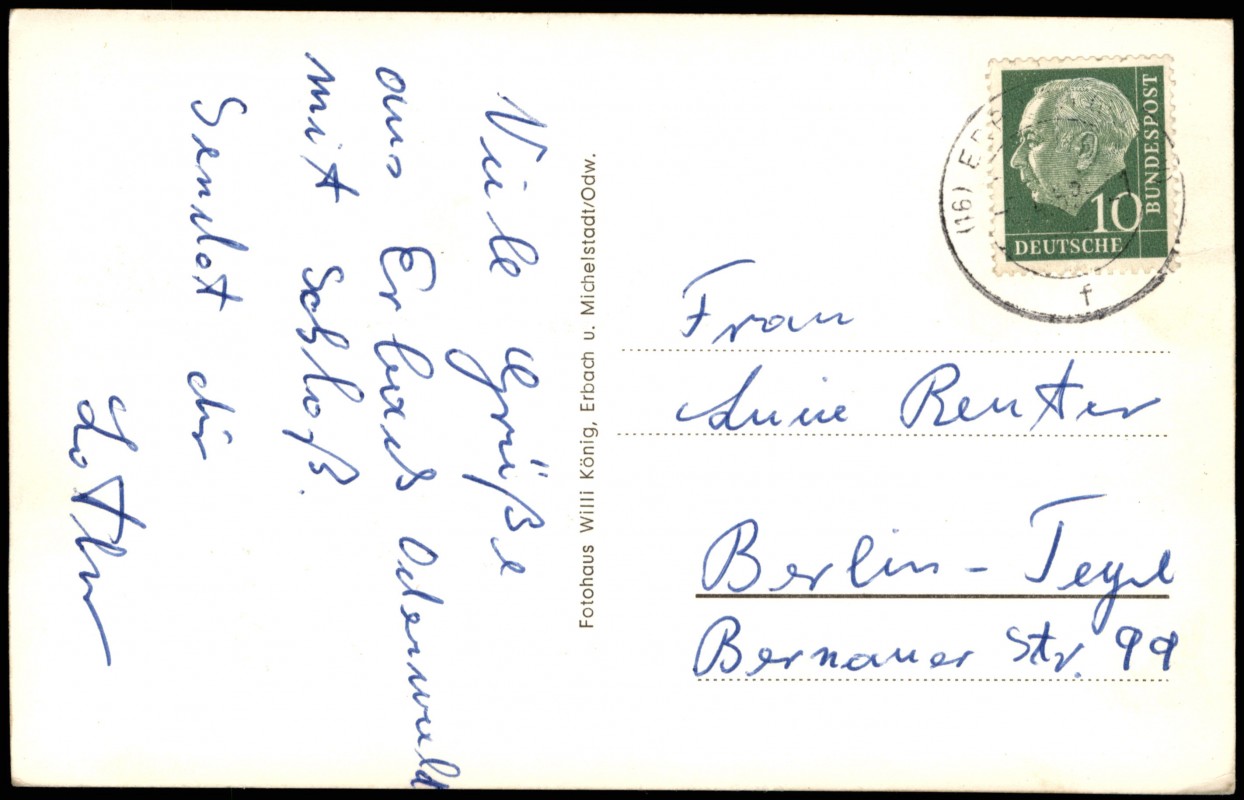 Viele Grüße
aus Erbach Odenwald
mit Schloß.
Sendet dir
Lothar
Fotohaus Willi König, Erbach u. Michelstadt/Odw.
DEUTSCHE
BUNDESPOST
10
(16)
f
Frau
Reuter
Berlin - Tegel
Bernauer Str. 99